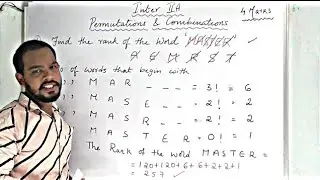 Inter IIA
4 Marks
Permutations & Combinations
Find the rank of the word MASTER
A E M R S T
of words that begin with
M A R _ _ _ = 3! = 6
M A S E _ _ = 2! = 2
M A S R _ _ = 2! = 2
M A S T E R = 0! = 1
The Rank of the word MASTER =
= 120+120+6+6+2+2+1
= 257